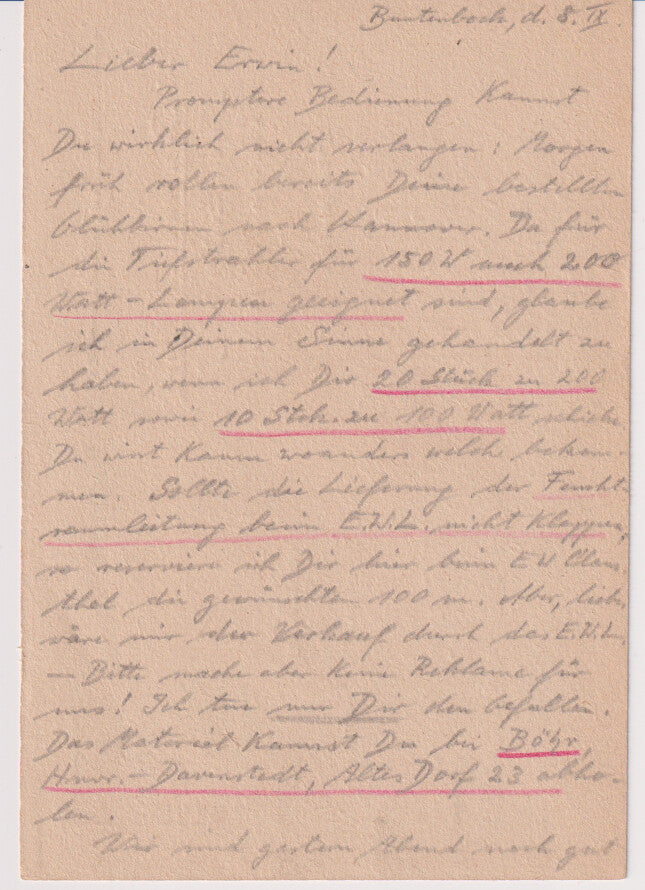 Buntenbock, d. 8. IX.
Lieber Erwin!
Promptere Bedienung kannst
Du wirklich nicht verlangen: Morgen
früh rollen bereits Deine bestellten
Glühbirnen nach Hannover. Da für
die Tiefstrahler für 150 W auch 200
Watt-Lampen geeignet sind, glaube
ich in Deinem Sinne gehandelt zu
haben, wenn ich Dir 20 Stück zu 200
Watt sowie 10 Stck. zu 100 Watt schicke.
Du wirst kaum woanders welche bekom-
men. Sollte die Lieferung der Feucht-
raumleitung beim E.W.L. nicht klappen,
so reserviere ich Dir hier beim EW Claus
thal die gewünschten 100 m. Aber, lieber
wäre mir der Verkauf durch das E.W.L.
— Bitte mache aber keine Reklame für
uns! Ich tue nur Dir den Gefallen.
Das Material kannst Du bei Böhr,
Hnvr.-Davenstedt, Altes Dorf 23 abho-
len.
Wir sind gestern Abend noch gut